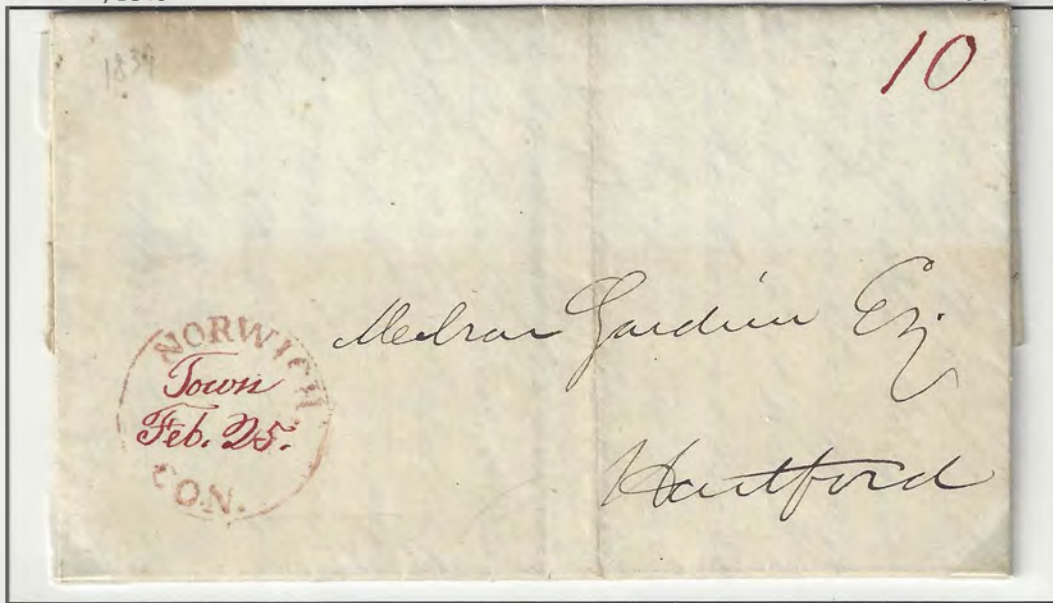 1839
10
NORWICH
Town
Feb. 25.
CON.
Gardiner Esq.
Hartford